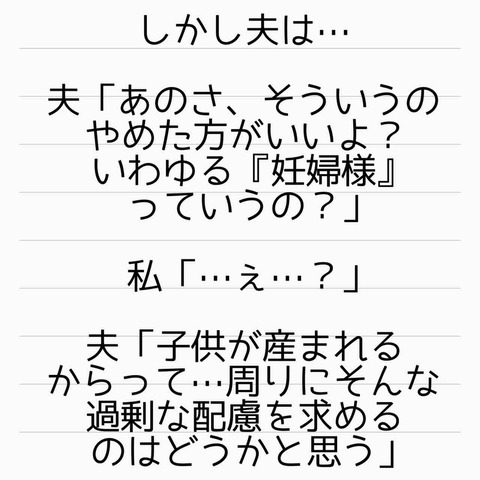 しかし夫は…
夫「あのさ、そういうの
やめた方がいいよ？
いわゆる『妊婦様』
っていうの？」
私「…ぇ…？」
夫「子供が産まれる
からって…周りにそんな
過剰な配慮を求める
のはどうかと思う」